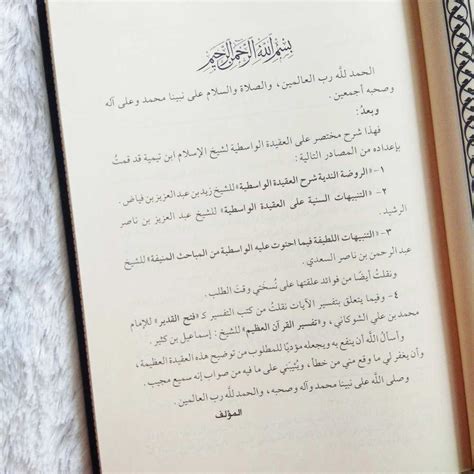 بسم الله الرحمن الرحيم
الحمد لله رب العالمين، والصلاة والسلام على نبينا محمد وعلى آله
وصحبه أجمعين.
وبعدُ:
فهذا شرح مختصر على العقيدة الواسطية لشيخ الإسلام ابن تيمية قد قمتُ
بإعداده من المصادر التالية:
١- «الروضة الندية شرح العقيدة الواسطية» للشيخ زيد بن عبد العزيز بن فياض.
٢- «التنبيهات السنية على العقيدة الواسطية» للشيخ عبد العزيز بن ناصر
الرشيد.
٣- «التنبيهات اللطيفة فيما احتوت عليه الواسطية من المباحث المنيفة» للشيخ
عبد الرحمن بن ناصر السعدي.
ونقلتُ أيضًا من فوائد علقتها على نُسختي وقت الطلب.
٤- وفيما يتعلق بتفسير الآيات نقلتُ من كتب التفسير كـ «فتح القدير» للإمام
محمد بن علي الشوكاني، و«تفسير القرآن العظيم» للشيخ: إسماعيل بن كثير.
وأسألُ الله أن ينفع به ويجعله مؤديًا للمطلوب من توضيح هذه العقيدة العظيمة،
وأن يغفر لي ما وقع مني من خطأ، ويُثيبني على ما فيه من صواب إنه سميع مجيب.
وصلى الله على نبينا محمد وآله وصحبه، والحمد لله رب العالمين.
المؤلف